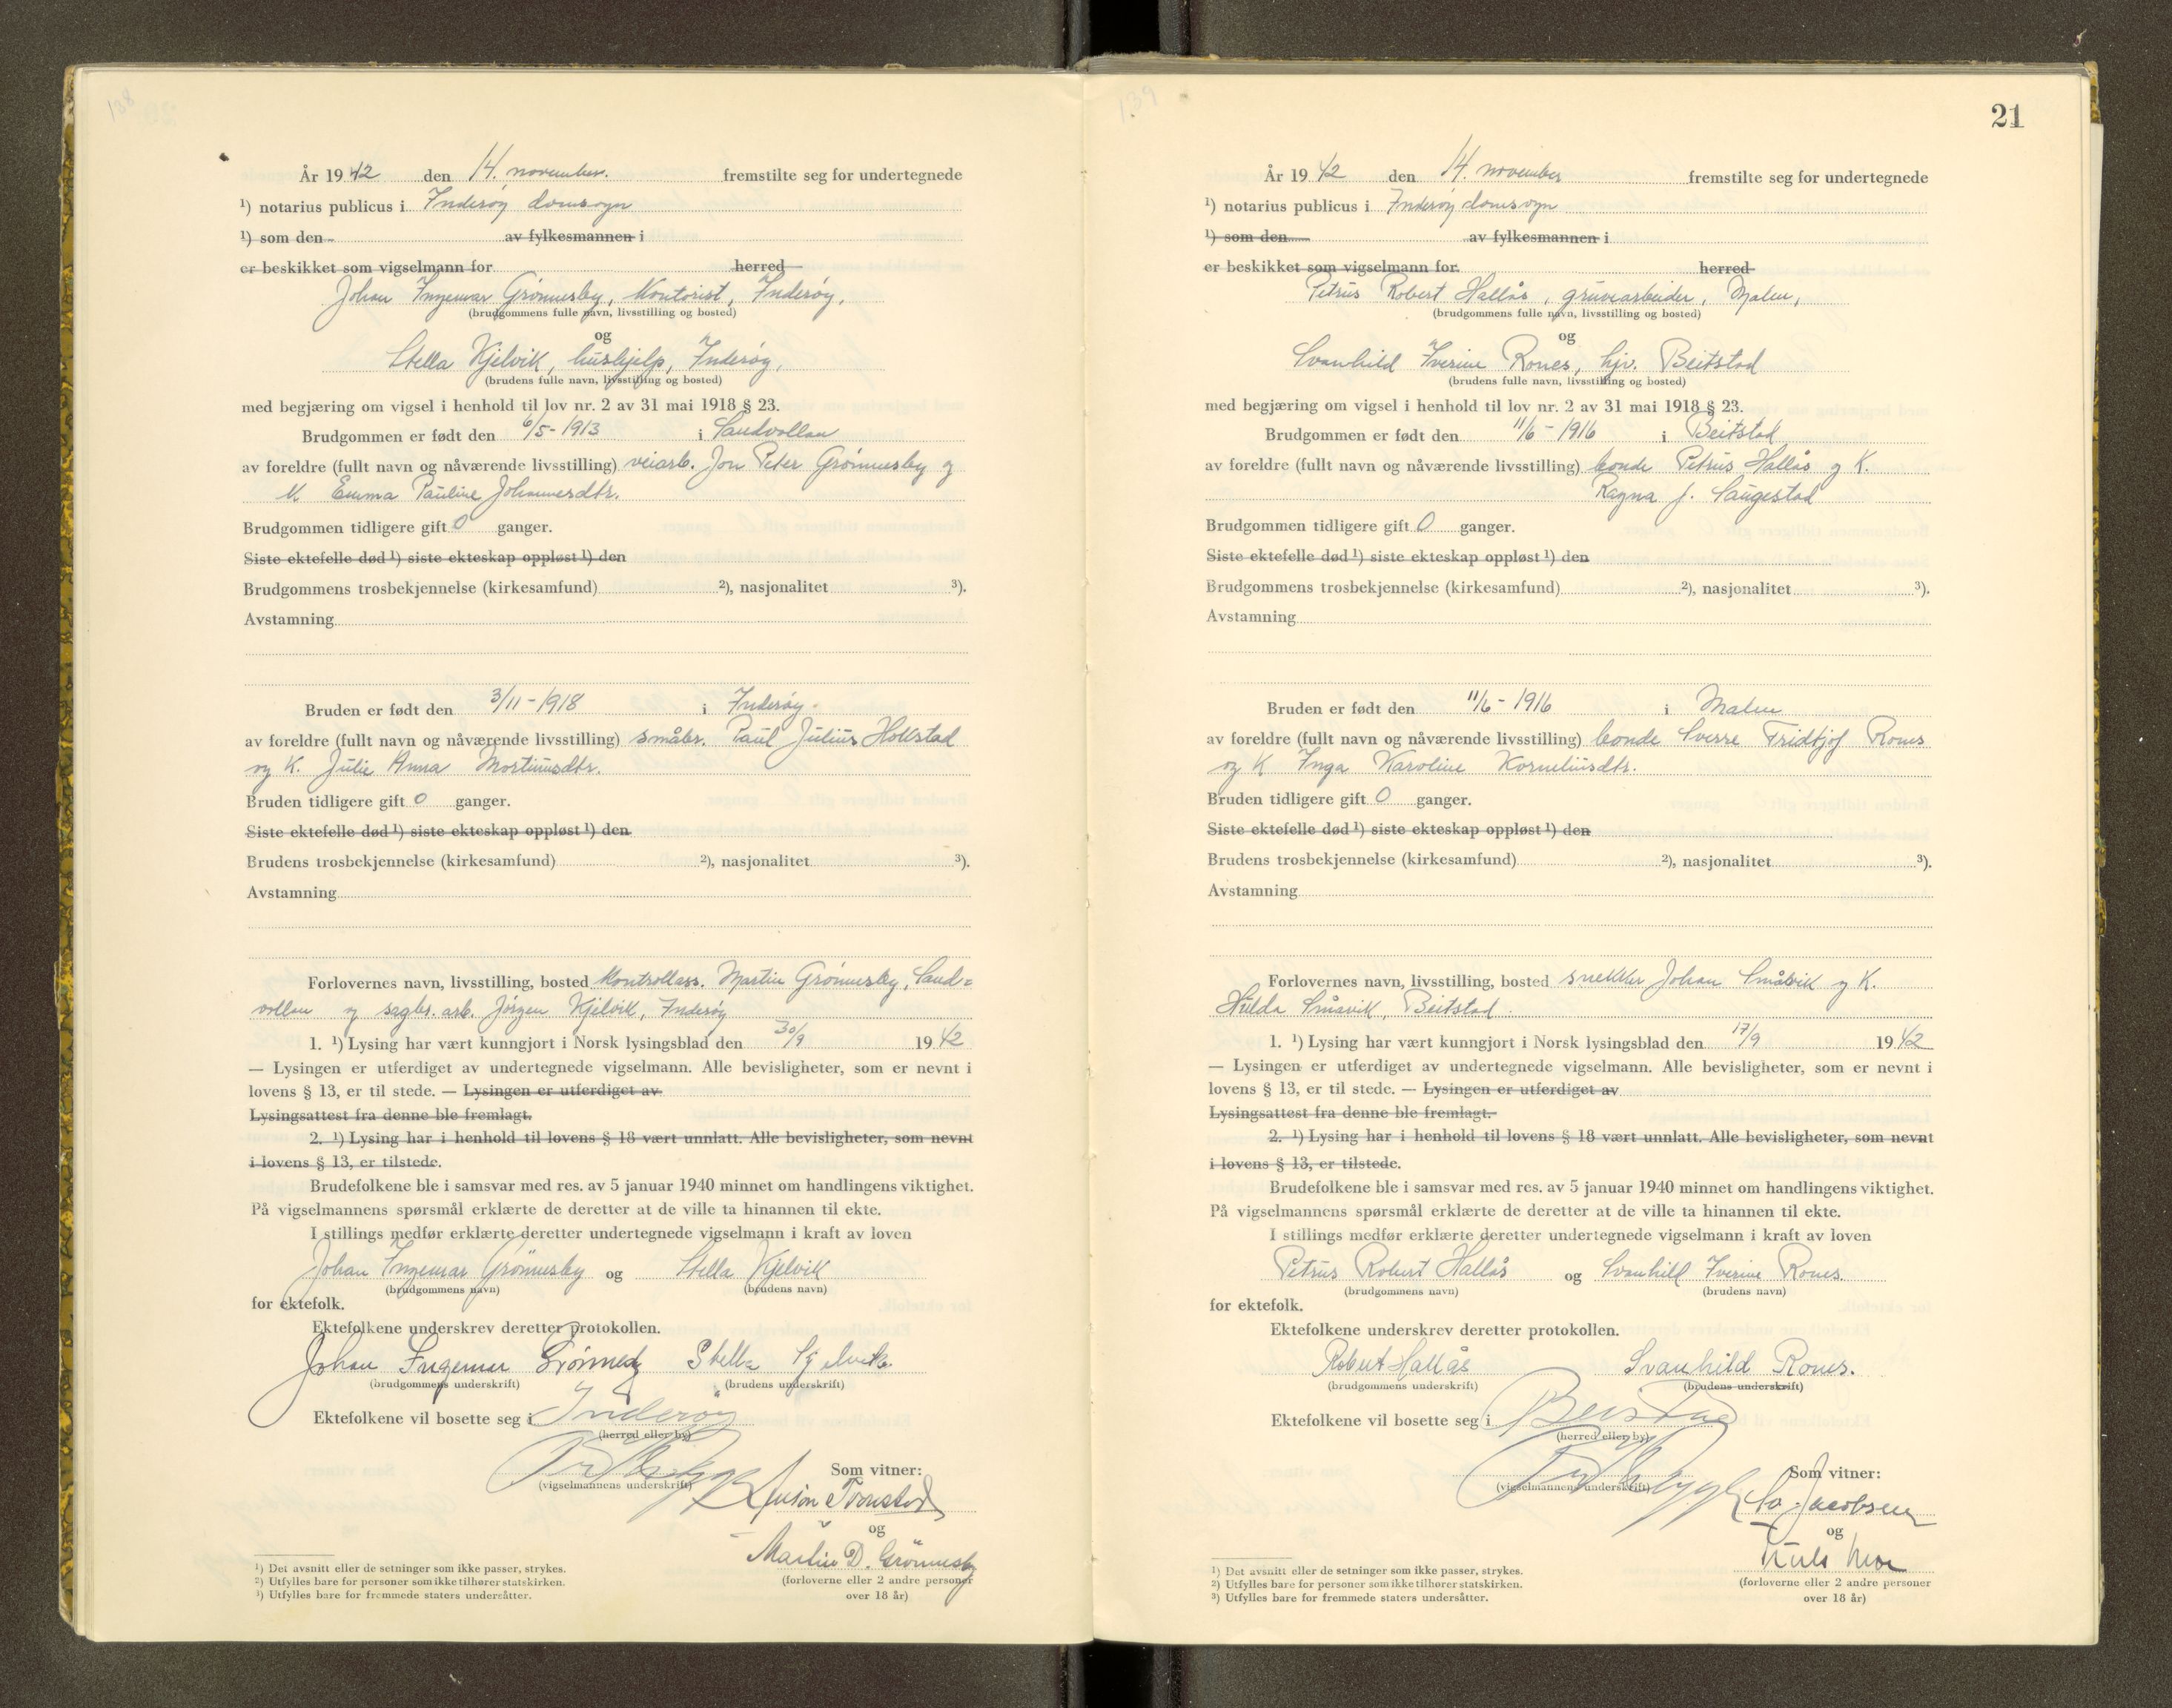 138
År 1942 den 14. november. fremstilte seg for undertegnede
¹) notarius publicus i Inderøy domsogn
¹) som den av fylkesmannen i
er beskikket som vigselmann for herred
Johan Ingemar Grönnesby, Kontorist, Inderøy.
(brudgommens fulle navn, livsstilling og bosted)
og
Stella Kjelvik, hushjelp, Inderøy,
(brudens fulle navn, livsstilling og bosted)
med begjæring om vigsel i henhold til lov nr. 2 av 31 mai 1918 § 23.
Brudgommen er født den 6/5-1913 i Sandvollan
av foreldre (fullt navn og nåværende livsstilling) veiarb. Jon Peter Grönnesby og
K Emma Pauline Johannesdtr.
Brudgommen tidligere gift 0 ganger.
Siste ektefelle død ¹) siste ekteskap oppløst ¹) den
Brudgommens trosbekjennelse (kirkesamfund) ²), nasjonalitet ³).
Avstamning
Bruden er født den 3/11-1918 i Inderøy.
av foreldre (fullt navn og nåværende livsstilling) småbr. Paul Julius Hollstad
og K. Julie Anna Mortinusdtr.
Bruden tidligere gift 0 ganger.
Siste ektefelle død ¹) siste ekteskap oppløst ¹) den
Brudens trosbekjennelse (kirkesamfund) ²), nasjonalitet ³).
Avstamning
Forlovernes navn, livsstilling, bosted kontrollass. Martin Grönnesby, Sand=
vollan og sagbr. arb. Jörgen Kjelvik, Inderøy
1. ¹) Lysing har vært kunngjort i Norsk lysingsblad den 30/9 1942
— Lysingen er utferdiget av undertegnede vigselmann. Alle bevisligheter, som er nevnt i
lovens § 13, er til stede. — Lysingen er utferdiget av
Lysingsattest fra denne ble fremlagt.
2. ¹) Lysing har i henhold til lovens § 18 vært unnlatt. Alle bevisligheter, som nevnt
i lovens § 13, er tilstede.
Brudefolkene ble i samsvar med res. av 5 januar 1940 minnet om handlingens viktighet.
På vigselmannens spørsmål erklærte de deretter at de ville ta hinannen til ekte.
I stillings medfør erklærte deretter undertegnede vigselmann i kraft av loven
Johan Ingemar Grönnesby og Stella Kjelvik
(brudgommens navn) (brudens navn)
for ektefolk.
Ektefolkene underskrev deretter protokollen.
Johan Ingemar Grönnesby Stella Kjelvik.
(brudgommens underskrift) (brudens underskrift)
Ektefolkene vil bosette seg i Inderøy
(herred eller by)
Som vitner:
(vigselmannens underskrift)
og
Martin D. Grönnesby
(forloverne eller 2 andre personer
over 18 år)
¹) Det avsnitt eller de setninger som ikke passer, strykes.
²) Utfylles bare for personer som ikke tilhører statskirken.
³) Utfylles bare for fremmede staters undersåtter.
139
21
År 1942 den 14. november fremstilte seg for undertegnede
¹) notarius publicus i Inderøy domsogn
¹) som den av fylkesmannen i
er beskikket som vigselmann for herred
Petrus Robert Hallås, gruvearbeider, Malm,
(brudgommens fulle navn, livsstilling og bosted)
og
Svanhild Iverine Rones, hjv. Beitstad
(brudens fulle navn, livsstilling og bosted)
med begjæring om vigsel i henhold til lov nr. 2 av 31 mai 1918 § 23.
Brudgommen er født den 11/6-1916 i Beitstad
av foreldre (fullt navn og nåværende livsstilling) bonde Petrus Hallås og K.
Ragna J. Saugestad
Brudgommen tidligere gift 0 ganger.
Siste ektefelle død ¹) siste ekteskap oppløst ¹) den
Brudgommens trosbekjennelse (kirkesamfund) ²), nasjonalitet ³).
Avstamning
Bruden er født den 11/6-1916 i Malm
av foreldre (fullt navn og nåværende livsstilling) bonde Sverre Fridtjof Rones
og K Inga Karoline Korneliusdtr.
Bruden tidligere gift 0 ganger.
Siste ektefelle død ¹) siste ekteskap oppløst ¹) den
Brudens trosbekjennelse (kirkesamfund) ²), nasjonalitet ³).
Avstamning
Forlovernes navn, livsstilling, bosted snekker Johan Småvik og K.
Hilda Småvik, Beitstad.
1. ¹) Lysing har vært kunngjort i Norsk lysingsblad den 17/9 1942
— Lysingen er utferdiget av undertegnede vigselmann. Alle bevisligheter, som er nevnt i
lovens § 13, er til stede. — Lysingen er utferdiget av
Lysingsattest fra denne ble fremlagt.
2. ¹) Lysing har i henhold til lovens § 18 vært unnlatt. Alle bevisligheter, som nevnt
i lovens § 13, er tilstede.
Brudefolkene ble i samsvar med res. av 5 januar 1940 minnet om handlingens viktighet.
På vigselmannens spørsmål erklærte de deretter at de ville ta hinannen til ekte.
I stillings medfør erklærte deretter undertegnede vigselmann i kraft av loven
Petrus Robert Hallås og Svanhild Iverine Rones.
(brudgommens navn) (brudens navn)
for ektefolk.
Ektefolkene underskrev deretter protokollen.
Robert Hallås Svanhild Rones.
(brudgommens underskrift) (brudens underskrift)
Ektefolkene vil bosette seg i Beitstad
(herred eller by)
Som vitner:
(vigselmannens underskrift)
Jacobsen
og
(forloverne eller 2 andre personer
over 18 år)
¹) Det avsnitt eller de setninger som ikke passer, strykes.
²) Utfylles bare for personer som ikke tilhører statskirken.
³) Utfylles bare for fremmede staters undersåtter.